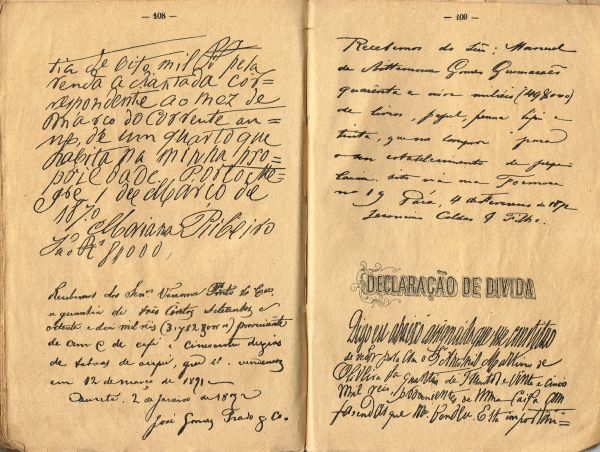 — 108 —
tia de oito mil rs pela
venda adiantada cor=
respondente ao mez de
Março do corrente an=
no, de um quarto que
habita na minha pro=
priedade. Porto Ale=
gre 1 de Março de
1870.
Mariana Ribeiro
São Rs 8$000,
Recebemos dos Snrs. Vianna Porto &
a quantia de três contos setecentos e
oitenta e dois mil réis proveniente
de um de café e cincoenta duzias
de taboas de que vendemos
em 12 de março de 1891.
2 de janeiro de 1892
José Gomes Prado & Co.
— 109 —
Recebemos do Snr: Manuel
de Gomes Guimarães
quarenta e nove milréis (49$000)
de livros, papel, penna lapis e
tinta, que no comprou para
o seu estabelecimento de
sito na rua Formosa
nº 19 Pará, 4 de Fevereiro de 187
Jeronimo Caldas & Filho.
DECLARAÇÃO DE DIVIDA
Digo eu abaixo assignado que me constituo
devedor pela ao Snr. Martins de
Oliveira da quantia de e vinte e cinco
mil reis, provenientes de uma Caixa com
fasendas que me vendeu. Esta importan=